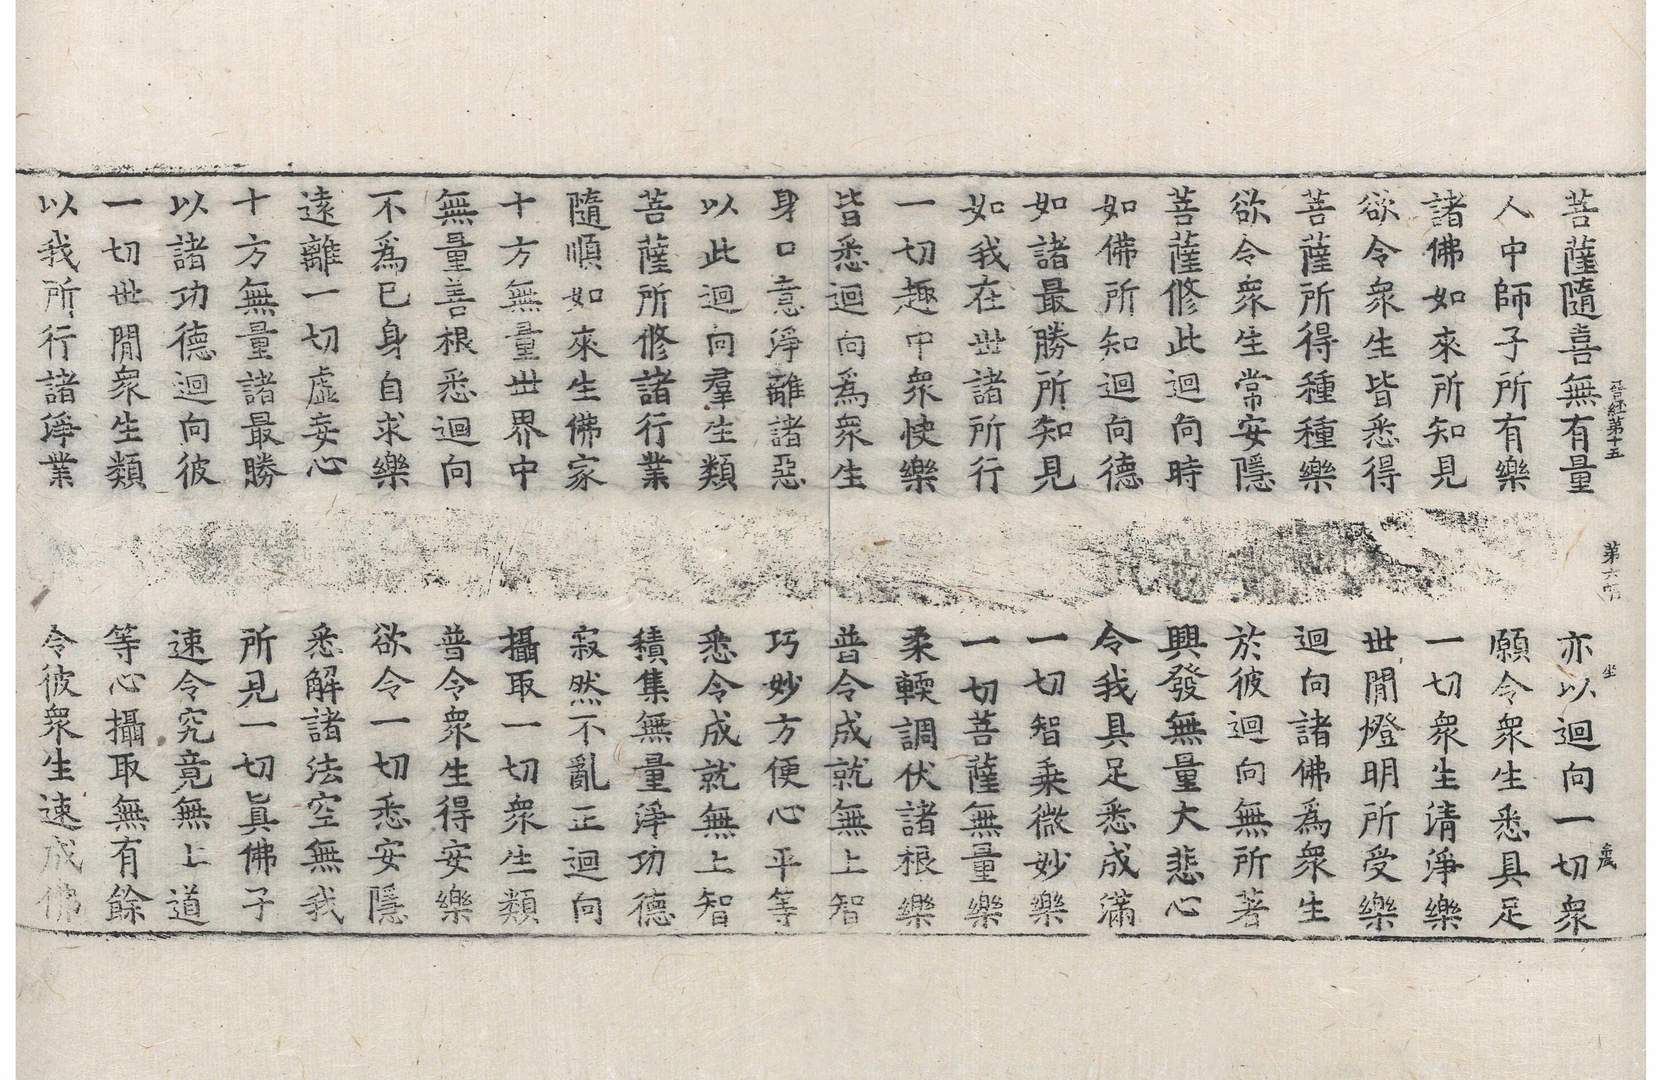 晉經第十五　第六張　坐
菩薩隨喜無有量　亦以迴向一切衆
人中師子所有樂　願令衆生悉具足
諸佛如來所知見　一切衆生清淨樂
欲令衆生皆悉得　世閒燈明所受樂
菩薩所得種種樂　迴向諸佛爲衆生
欲令衆生常安隱　於彼迴向無所著
菩薩修此迴向時　興發無量大悲心
如佛所知迴向德　令我具足悉成滿
如諸最勝所知見　一切智乗微妙樂
如我在世諸所行　一切菩薩無量樂
一切趣中衆快樂　柔輭調伏諸根樂
皆悉迴向爲衆生　普令成就無上智
身口意淨離諸惡　巧妙方便心平等
以此迴向羣生類　悉令成就無上智
菩薩所修諸行業　積集無量淨功德
隨順如來生佛家　寂然不亂正迴向
十方無量世界中　攝取一切衆生類
無量善根悉迴向　普令衆生得安樂
不爲己身自求樂　欲令一切悉安隱
遠離一切虛妄心　悉解諸法空無我
十方無量諸最勝　所見一切眞佛子
以諸功德迴向彼　速令究竟無上道
一切世閒衆生類　等心攝取無有餘
以我所行諸淨業　令彼衆生速成佛